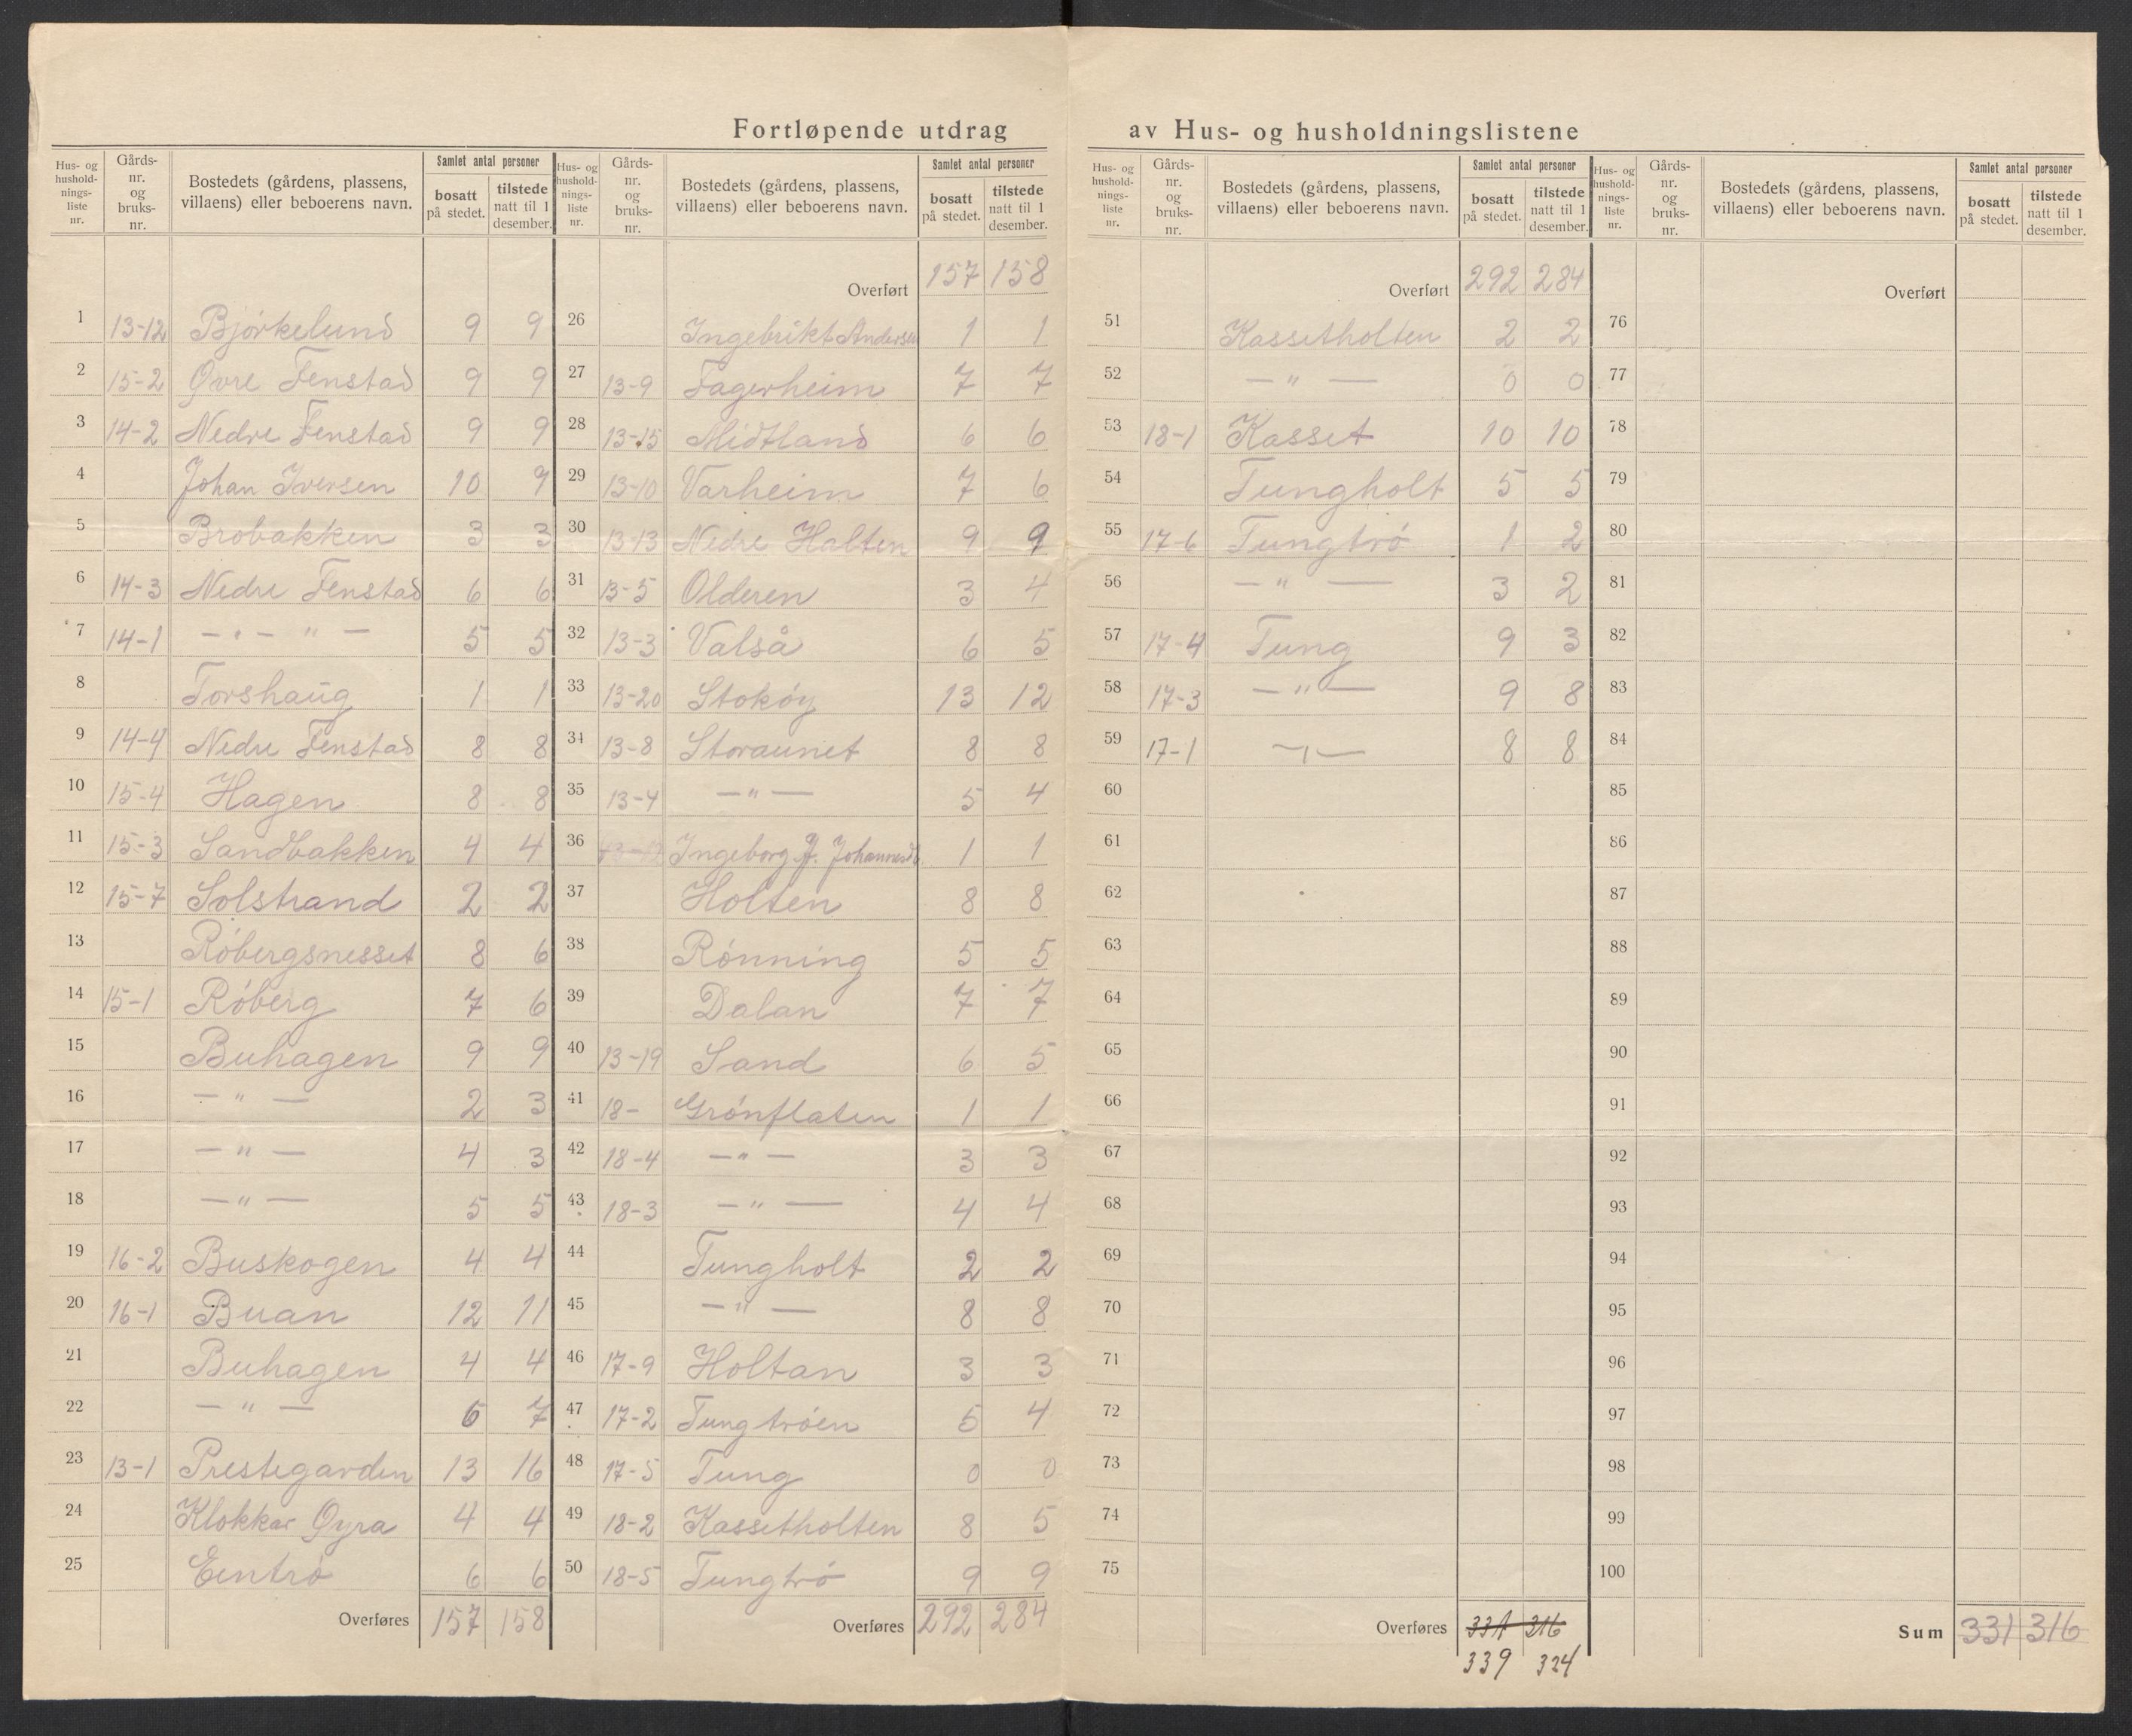 Fortløpende utdrag av Hus- og husholdningslistene
Hus- og hushold-nings-liste nr. | Gårds-nr. og bruks-nr. | Bostedets (gårdens, plassens, villaens) eller beboerens navn. | Samlet antal personer | bosatt på stedet. | tilstede natt til 1 desember.
1 13-12 Bjørkelund 9 9
2 15-2 Øvre Fenstad 9 9
3 14-2 Nedre Fenstad 9 9
4 Johan Iversen 10 9
5 Brobakken 3 3
6 14-3 Nedre Fenstad 6 6
7 14-1 — " — " — 5 5
8 Torshaug 1 1
9 14-4 Nedre Fenstad 8 8
10 15-4 Hagen 8 8
11 15-3 Sandbakken 4 4
12 15-7 Solstrand 2 2
13 Røbergsnesset 8 6
14 15-1 Røberg 7 6
15 Buhagen 9 9
16 — " — 2 3
17 — " — 4 3
18 — " — 5 5
19 16-2 Buskogen 4 4
20 16-1 Buan 12 11
21 Buhagen 4 4
22 — " — 6 7
23 13-1 Prestegarden 13 16
24 Klokkar Øyra 4 4
25 Eentrø 6 6
Overføres 157 158
Hus- og hushold-nings-liste nr. | Gårds-nr. og bruks-nr. | Bostedets (gårdens, plassens, villaens) eller beboerens navn. | Samlet antal personer | bosatt på stedet. | tilstede natt til 1 desember.
Overført 157 158
26 Ingebrikt Andersen 1 1
27 13-9 Fagerheim 7 7
28 13-15 Midtland 6 6
29 13-10 Varheim 7 6
30 13-13 Nedre Halten 9 9
31 13-5 Olderen 3 4
32 13-3 Valså 6 5
33 13-20 Stokøy 13 12
34 13-8 Storaunet 8 8
35 13-4 — " — 5 4
36 Ingeborg J. 1 1
37 Holten 8 8
38 Rønning 5 5
39 Dalan 7 7
40 13-19 Sand 6 5
41 18- Grønflaten 1 1
42 18-4 — " — 3 3
43 18-3 — " — 4 4
44 Tungholt 2 2
45 — " — 8 8
46 17-9 Holtan 3 3
47 17-2 Tungtrøen 5 4
48 17-5 Tung 0 0
49 18-2 Kassetholten 8 5
50 18-5 Tungtrø 9 9
Overføres 292 284
Hus- og hushold-nings-liste nr. | Gårds-nr. og bruks-nr. | Bostedets (gårdens, plassens, villaens) eller beboerens navn. | Samlet antal personer | bosatt på stedet. | tilstede natt til 1 desember.
Overført 292 284
51 Kassetholten 2 2
52 — " — 0 0
53 18-1 Kasset 10 10
54 Tungholt 5 5
55 17-6 Tungtrø 1 2
56 — " — 3 2
57 17-4 Tung 9 3
58 17-3 — " — 9 8
59 17-1 — " — 8 8
60
61
62
63
64
65
66
67
68
69
70
71
72
73
74
75
Overføres 331 316
339 324
Hus- og hushold-nings-liste nr. | Gårds-nr. og bruks-nr. | Bostedets (gårdens, plassens, villaens) eller beboerens navn. | Samlet antal personer | bosatt på stedet. | tilstede natt til 1 desember.
Overført
76
77
78
79
80
81
82
83
84
85
86
87
88
89
90
91
92
93
94
95
96
97
98
99
100
Sum 331 316